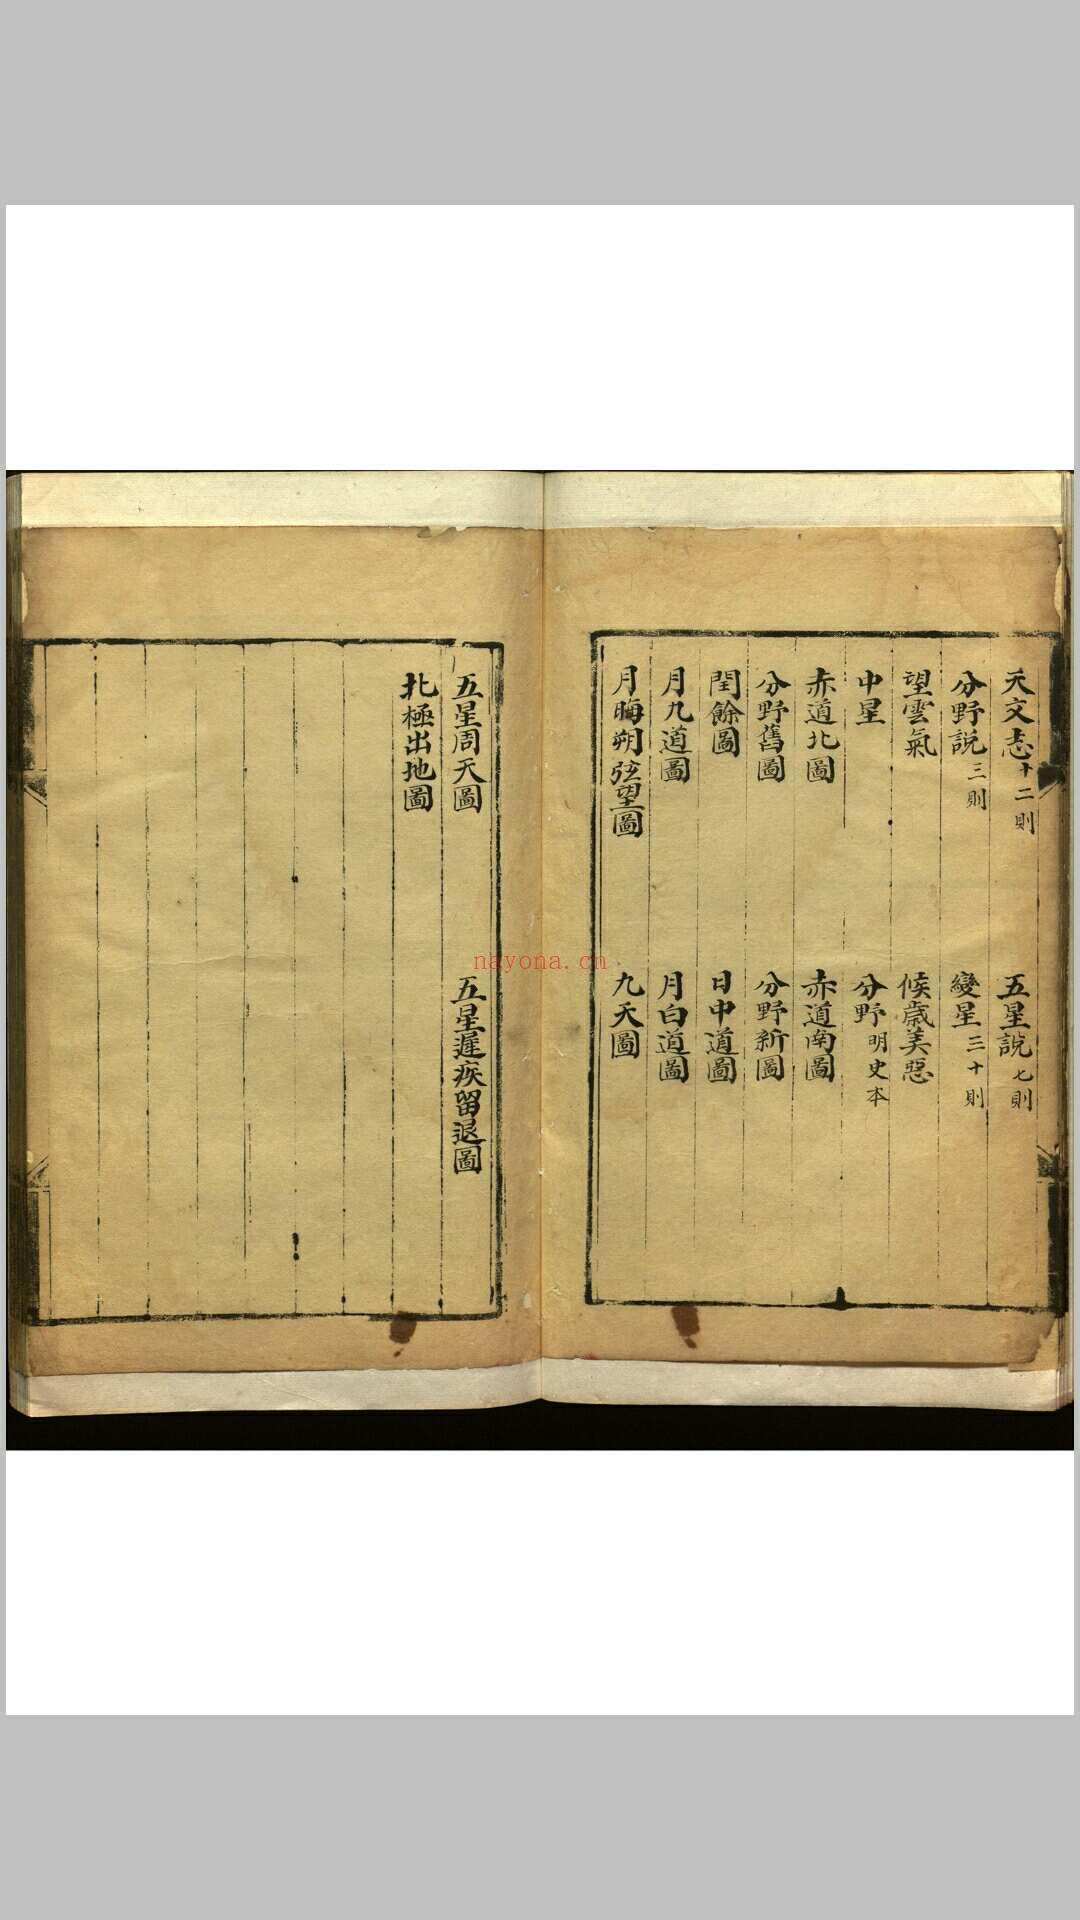 天文志十二則
五星説七則
分野説三則
變星三十則
望雲氣
候歳美惡
中星
分野明史本
赤道北圖
赤道南圖
分野舊圖
分野新圖
閏餘圖
日中道圖
月九道圖
月白道圖
月晦朔弦望圖
九天圖
五星周天圖
五星遲疾留退圖
北極出地圖
nayona.cn